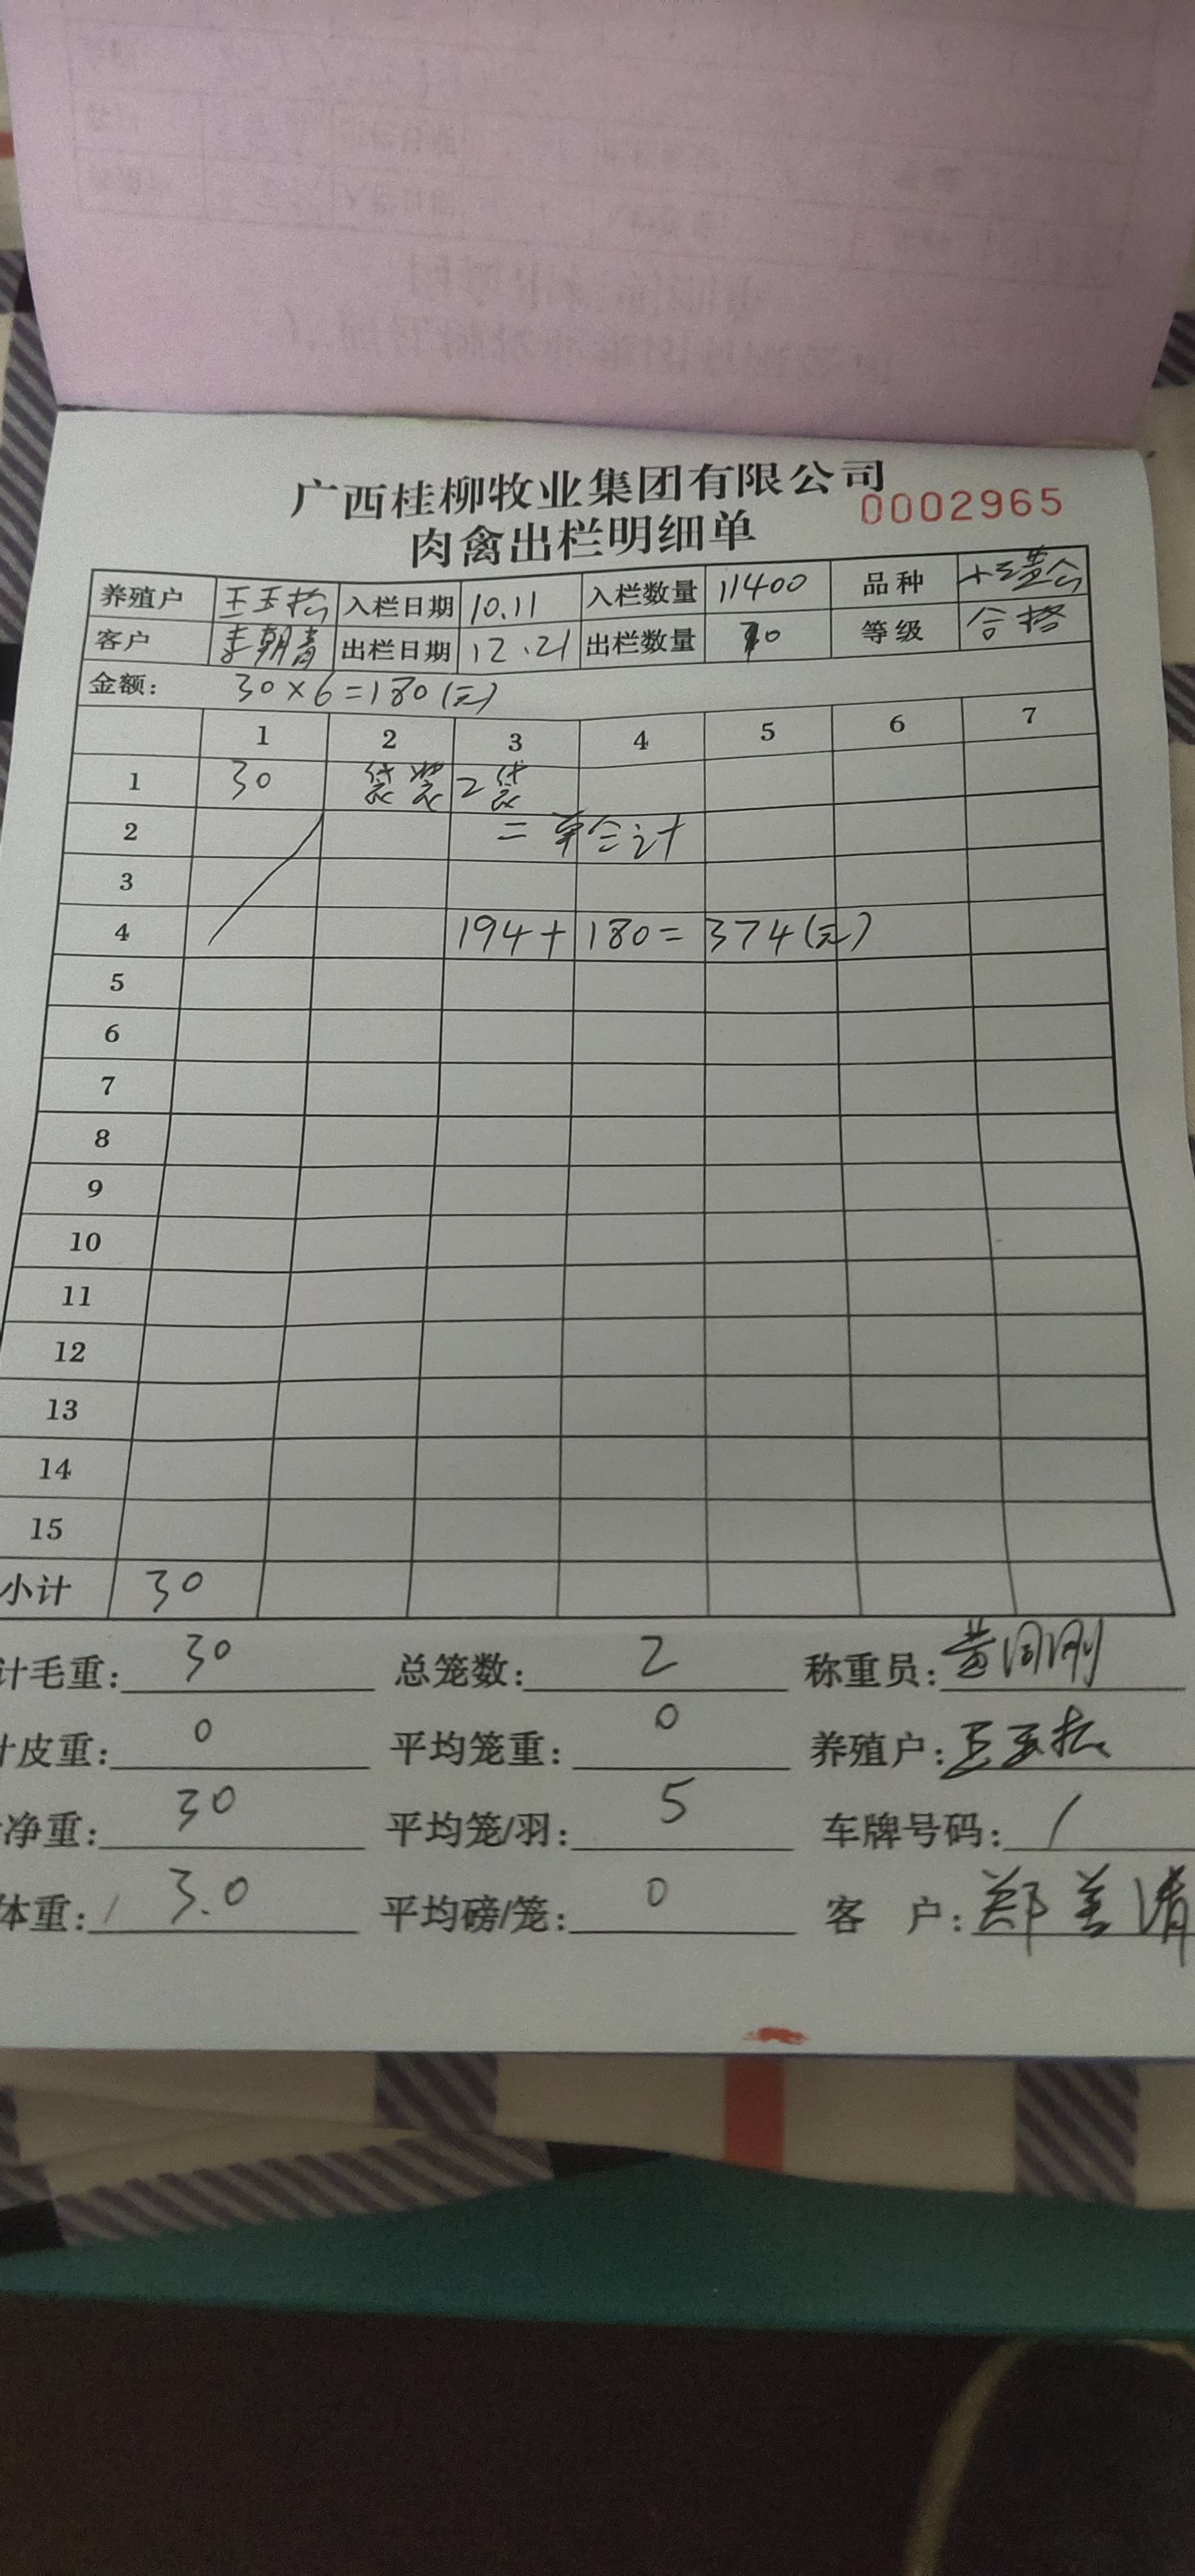 广西桂柳牧业集团有限公司
0002965
肉禽出栏明细单
养殖户 王玉松 入栏日期 10.11 入栏数量 11400 品种
客户 李朝青 出栏日期 12.21 出栏数量 10 等级 合格
金额: 30×6=180(元)
1 2 3 4 5 6 7
1 30 袋装 2袋
2 二单合计
3
4 194+180=374(元)
5
6
7
8
9
10
11
12
13
14
15
小计 30
计毛重: 30 总笼数: 2 称重员:
皮重: 0 平均笼重: 0 养殖户:
净重: 30 平均笼/羽: 5 车牌号码: /
体重: 3.0 平均磅/笼: 0 客户: 郑美清